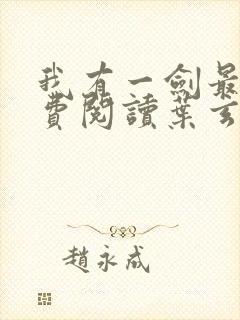 我有一劍最
費閱讀葉玄
趙永成